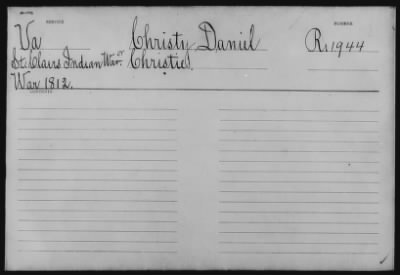 SERVICE NUMBER
Va Christy, Daniel R. 1944
St. Clairs Indian War. or Christie.
War 1812.
CONTENTS